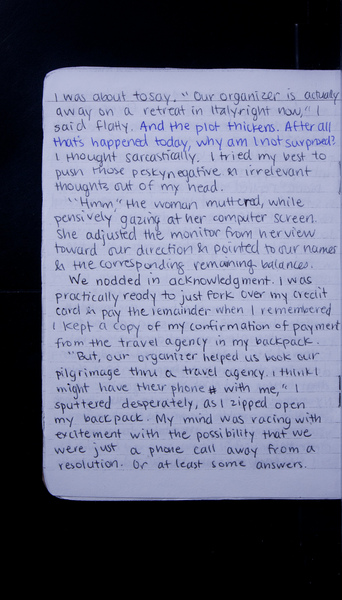 I was about to say. "Our organizer is actually
away on a retreat in Italy right now," I
said flatly. And the plot thickens. After all
that's happened today, why am I not surprised?
I thought sarcastically. I tried my best to
push those pesky negative & irrelevant
thoughts out of my head.
"Hmm" the woman muttered, while
pensively gazing at her computer screen.
She adjusted the monitor from her view
toward our direction & pointed to our names
& the corresponding remaining balances.
We nodded in acknowledgment. I was
practically ready to just fork over my credit
card & pay the remainder when I remembered
I kept a copy of my confirmation of payment
from the travel agency in my backpack.
"But, our organizer helped us book our
pilgrimage thru a travel agency. I think I
might have their phone # with me," I
sputtered desperately, as I zipped open
my backpack. My mind was racing with
excitement with the possibility that we
were just a phone call away from a
resolution. Or at least some answers.